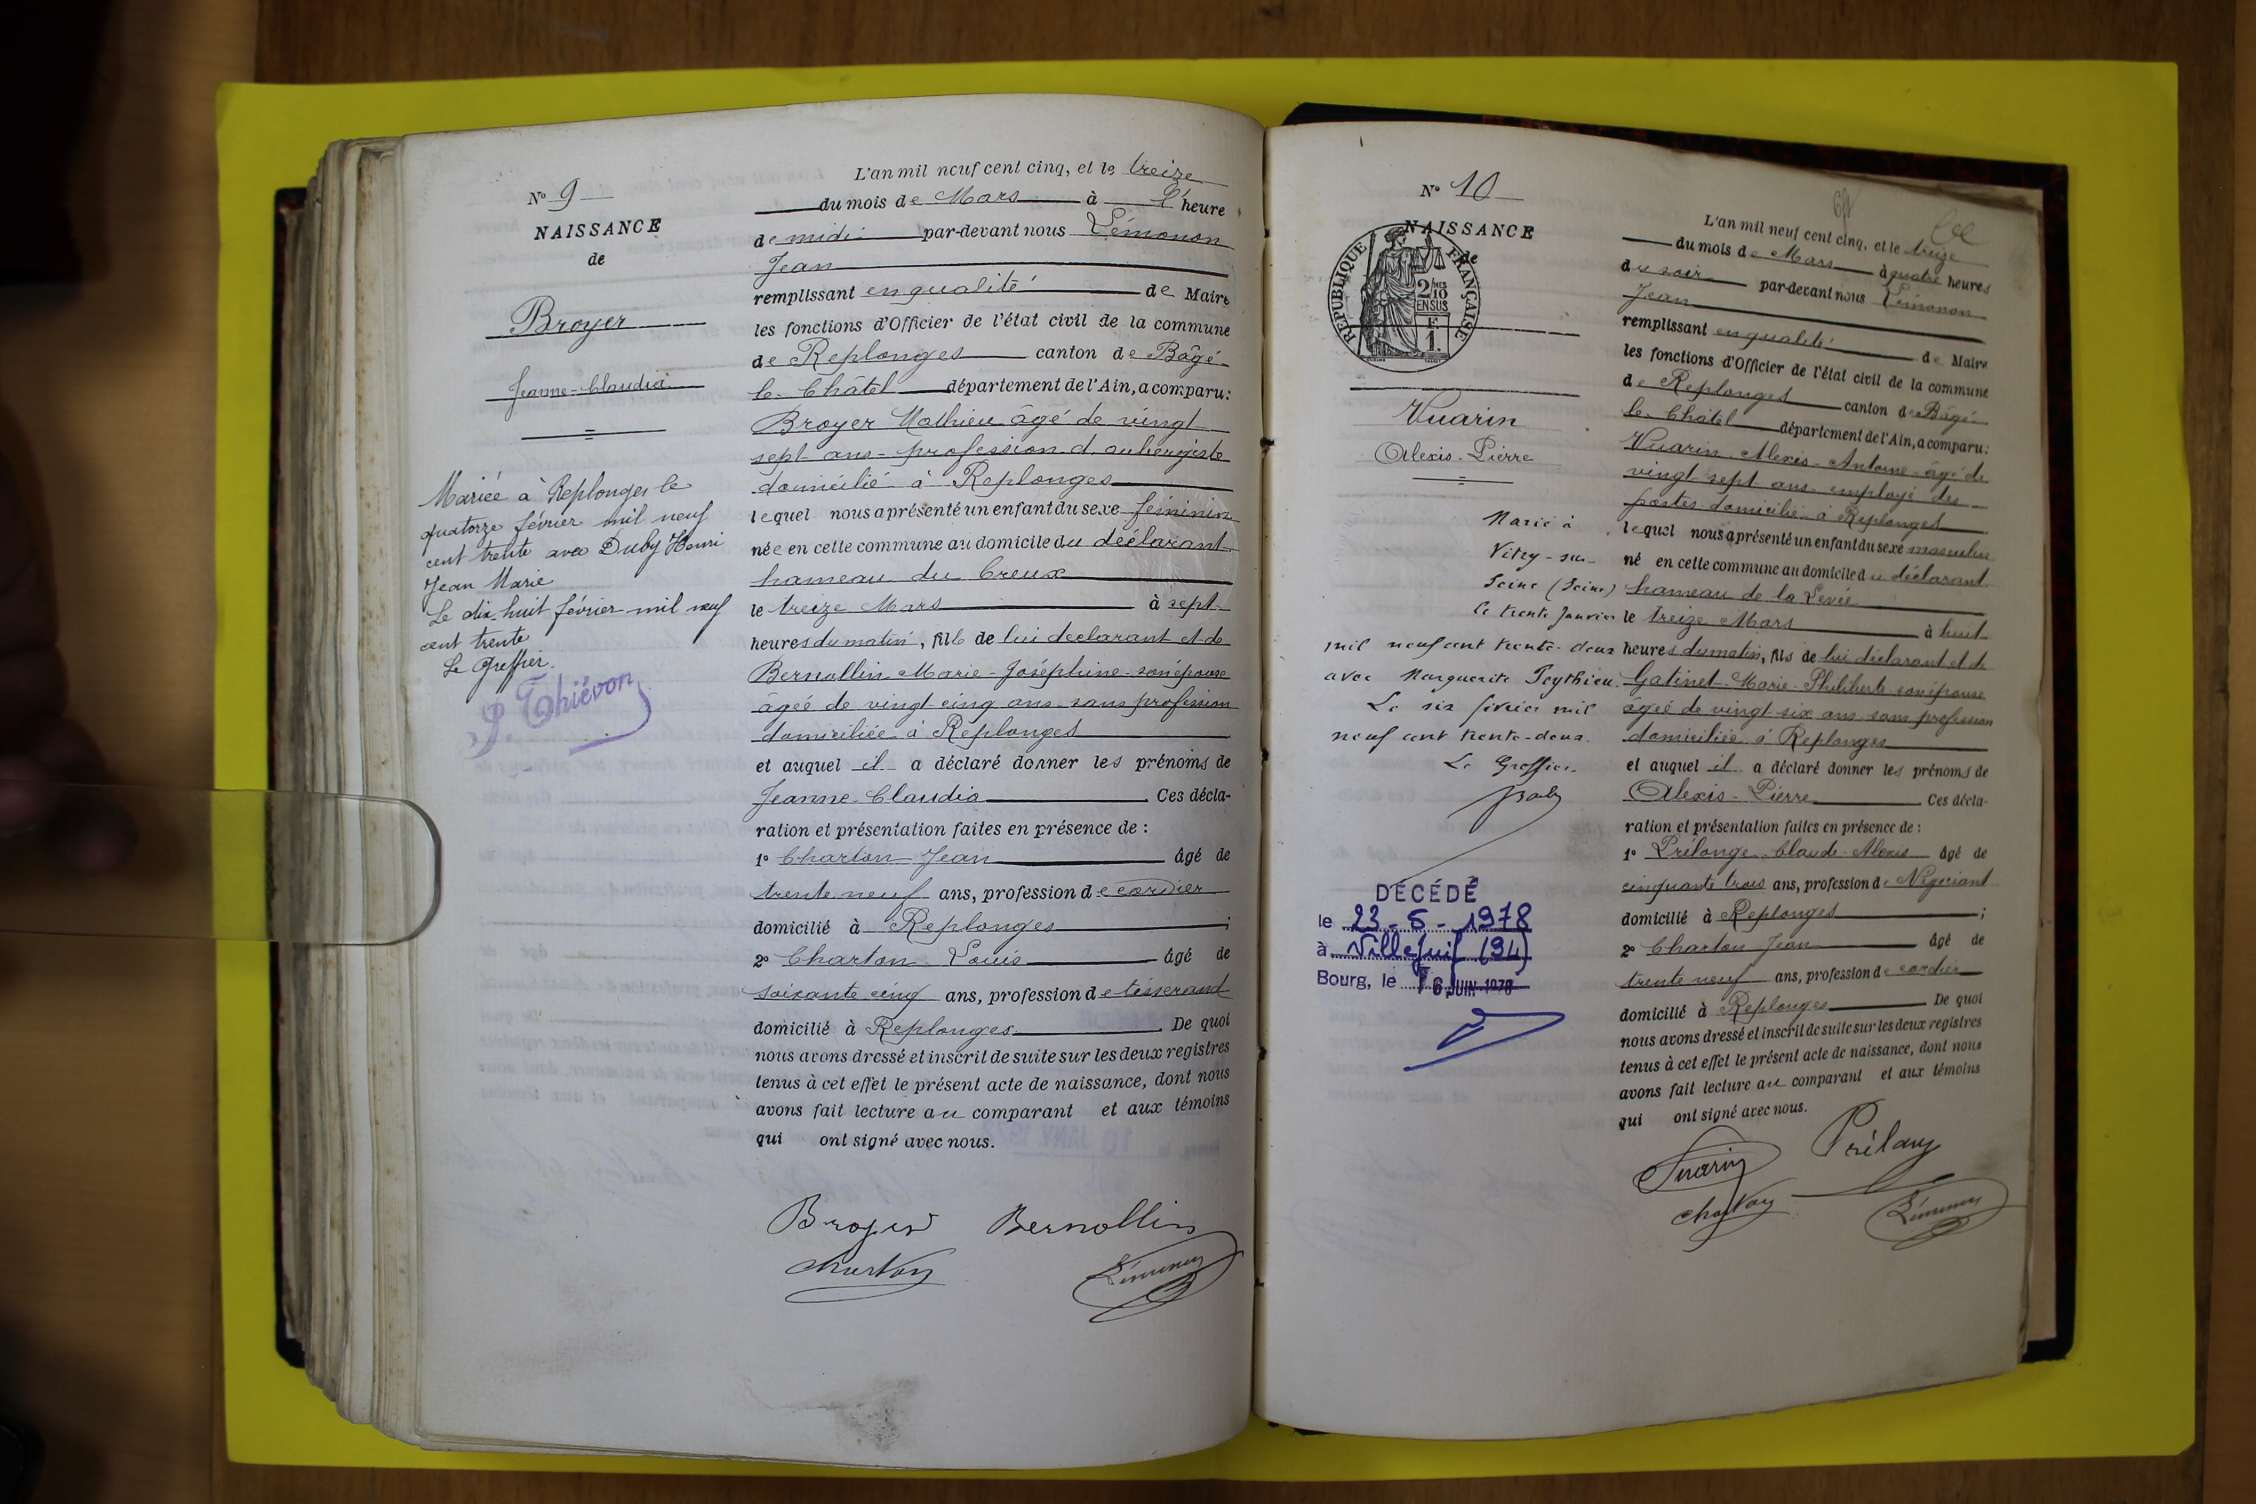 Nº 9
NAISSANCE
de
Broyer
Jeanne-Claudia
Mariée à Replonges le
quatorze février mil neuf
cent trente avec Duby Henri
Jean Marie
Le dix-huit février mil neuf
cent trente
Le Greffier.
P. Thiévon
L'an mil neuf cent cinq, et le treize
du mois de Mars à l' heure
de midi par-devant nous Lémonon
Jean
remplissant en qualité de Maire
les fonctions d'Officier de l'état civil de la commune
de Replonges canton de Bâgé
le Châtel département de l'Ain, a comparu:
Broyer Mathieu âgé de vingt
sept ans - profession d'aubergiste
domicilié à Replonges
lequel nous a présenté un enfant du sexe féminin
née en cette commune au domicile du déclarant
hameau du Creux
le treize Mars à sept
heures du matin, fille de lui déclarant et de
Bernollin Marie-Joséphine son épouse
âgée de vingt cinq ans sans profession
domiciliée à Replonges
et auquel il a déclaré donner les prénoms de
Jeanne-Claudia Ces décla-
ration et présentation faites en présence de :
1º Charton Jean âgé de
trente neuf ans, profession de cordier
domicilié à Replonges ;
2º Charton Louis âgé de
soixante cinq ans, profession de tisserand
domicilié à Replonges. De quoi
nous avons dressé et inscrit de suite sur les deux registres
tenus à cet effet le présent acte de naissance, dont nous
avons fait lecture au comparant et aux témoins
qui ont signé avec nous.
Broyer Bernollin
Charton Lémonon
Nº 10
NAISSANCE
de
RÉPUBLIQUE FRANÇAISE
2/10MES
EN SUS
F
1.
Vuarin
Alexis-Pierre
Marié à
Vitry-sur-
Seine (Seine)
le trente Janvier
mil neuf cent trente-deux
avec Marguerite Peythieu.
Le six février mil
neuf cent trente-deux.
Le Greffier.
DÉCÉDÉ
le 23-5-1978
à Villejuif (94)
Bourg, le 16 JUIN 1978
L'an mil neuf cent cinq, et le treize
du mois de Mars à quatre heures
du soir par-devant nous Lémonon
Jean
remplissant en qualité de Maire
les fonctions d'Officier de l'état civil de la commune
de Replonges canton de Bâgé
le Châtel département de l'Ain, a comparu:
Vuarin Alexis-Antoine âgé de
vingt sept ans employé des
postes domicilié à Replonges
lequel nous a présenté un enfant du sexe masculin
né en cette commune au domicile du déclarant
hameau de la Levée
le treize Mars à huit
heures du matin, fils de lui déclarant et de
Gatinet Marie-Philiberte son épouse
âgée de vingt six ans sans profession
domiciliée à Replonges
et auquel il a déclaré donner les prénoms de
Alexis-Pierre Ces décla-
ration et présentation faites en présence de :
1º Prélonge Claude-Alexis âgé de
cinquante trois ans, profession de Négociant
domicilié à Replonges ;
2º Charton Jean âgé de
trente neuf ans, profession de cordier
domicilié à Replonges De quoi
nous avons dressé et inscrit de suite sur les deux registres
tenus à cet effet le présent acte de naissance, dont nous
avons fait lecture au comparant et aux témoins
qui ont signé avec nous.
Vuarin
Charton Lémonon